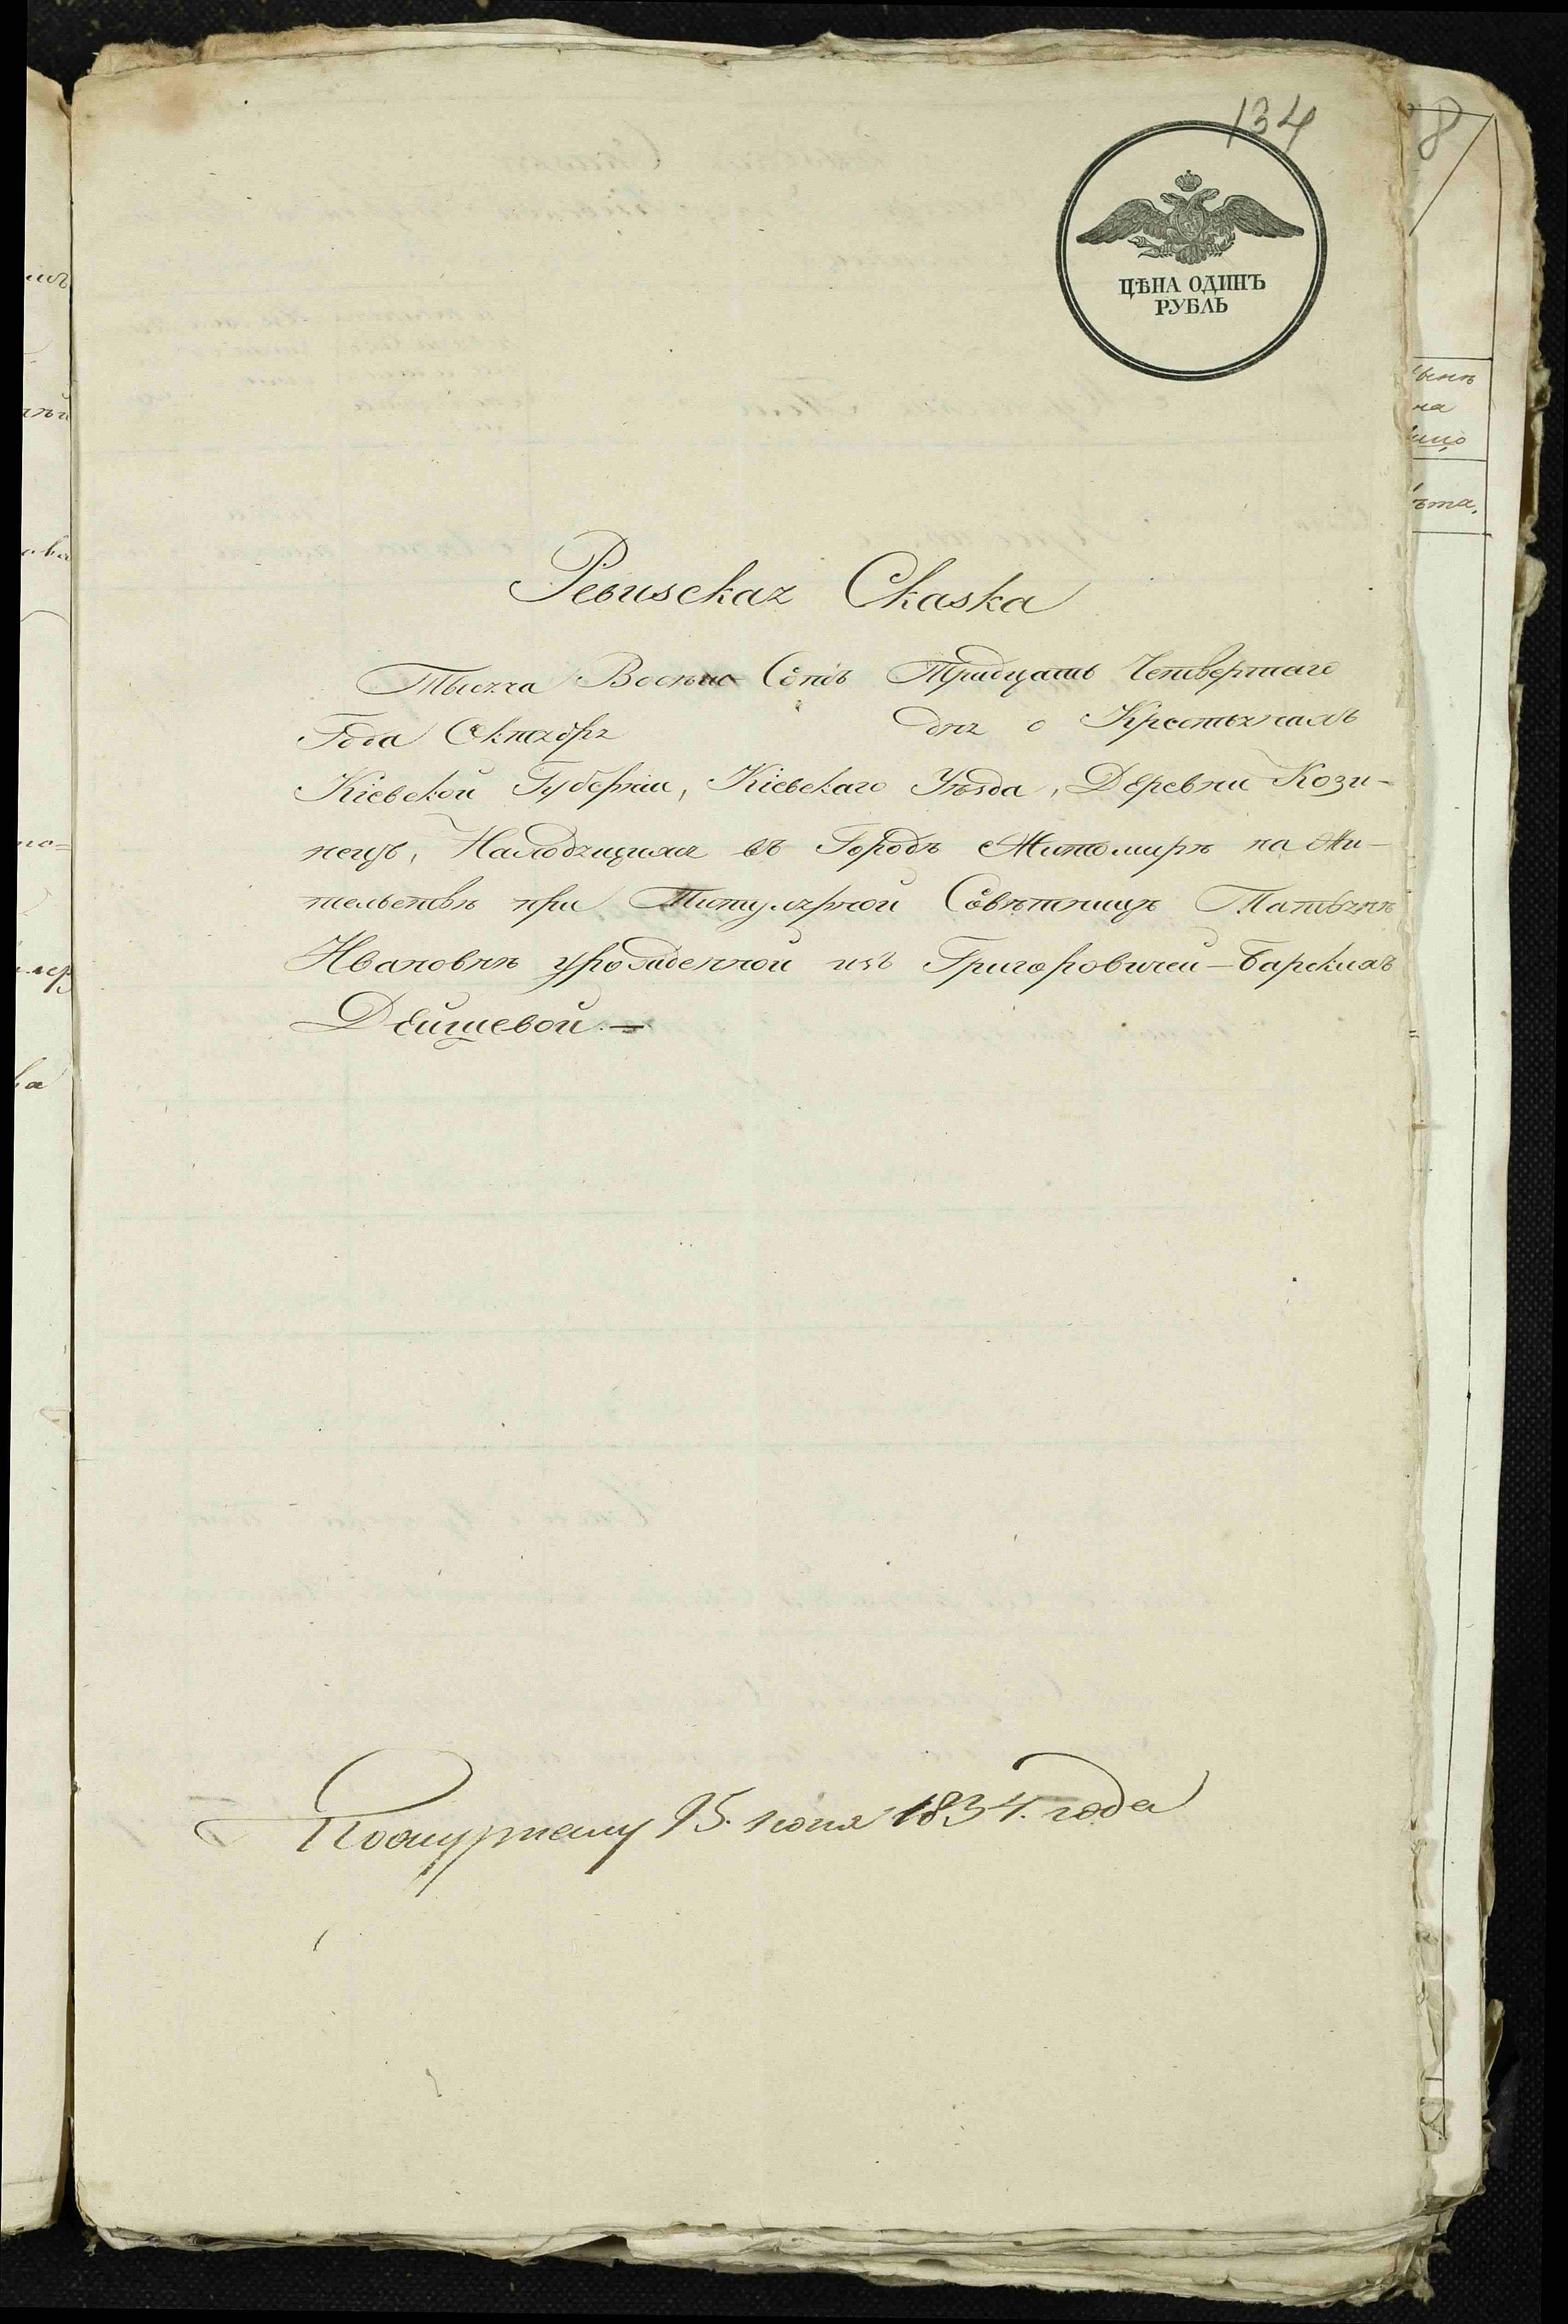 134
8
ЦѢНА ОДИНЪ
РУБЛЬ
Ревизская Сказка
Тысяча Восемь Сотъ Тридцать Четвертаго
Года Октября дня о Крестьянахъ
Кіевской Губерніи, Кіевскаго Уѣзда, Деревни Кози-
нецъ, Находящихся въ Городѣ Житомирѣ на жи-
тельствѣ при Титулярной Совѣтницѣ Татьянѣ
Ивановнѣ урожденной изъ Григоровичей-Барскихъ
Дейшевой.—
15. 1834. года